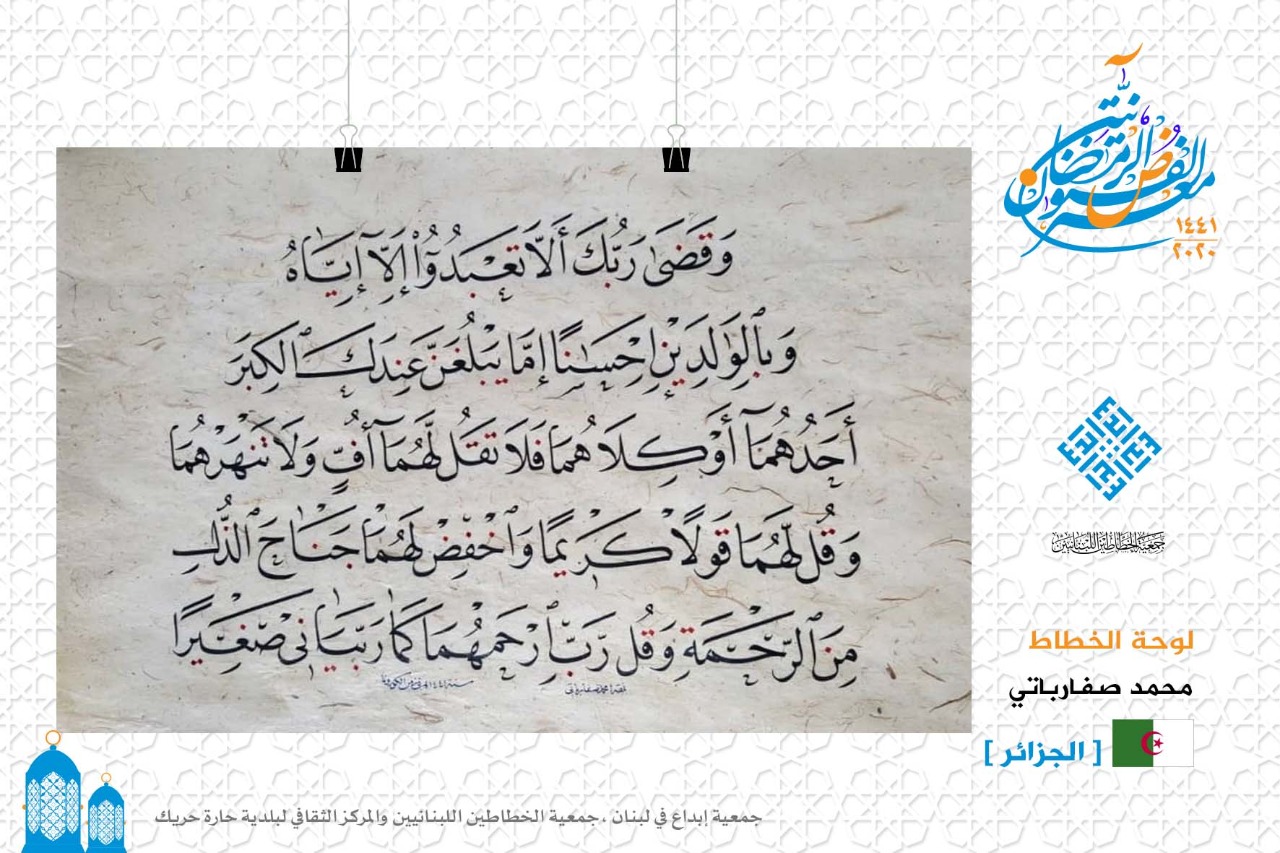 معرض الفنون الرمضانية
١٤٤١
٢٠٢٠
وَقَضَىٰ رَبُّكَ أَلَّا تَعْبُدُوٓا۟ إِلَّآ إِيَّاهُ
وَبِٱلْوَٰلِدَيْنِ إِحْسَٰنًا إِمَّا يَبْلُغَنَّ عِندَكَ ٱلْكِبَرَ
أَحَدُهُمَآ أَوْ كِلَاهُمَا فَلَا تَقُل لَّهُمَآ أُفٍّ وَلَا تَنْهَرْهُمَا
وَقُل لَّهُمَا قَوْلًا كَرِيمًا وَٱخْفِضْ لَهُمَا جَنَاحَ ٱلذُّلِّ
مِنَ ٱلرَّحْمَةِ وَقُل رَّبِّ ٱرْحَمْهُمَا كَمَا رَبَّيَانِى صَغِيرًا
جمعية الخطاطين اللبنانيين
لوحة الخطاط
محمد صفارباتي
[ الجزائر ]
جمعية إبداع في لبنان ، جمعية الخطاطين اللبنانيين والمركز الثقافي لبلدية حارة حريك